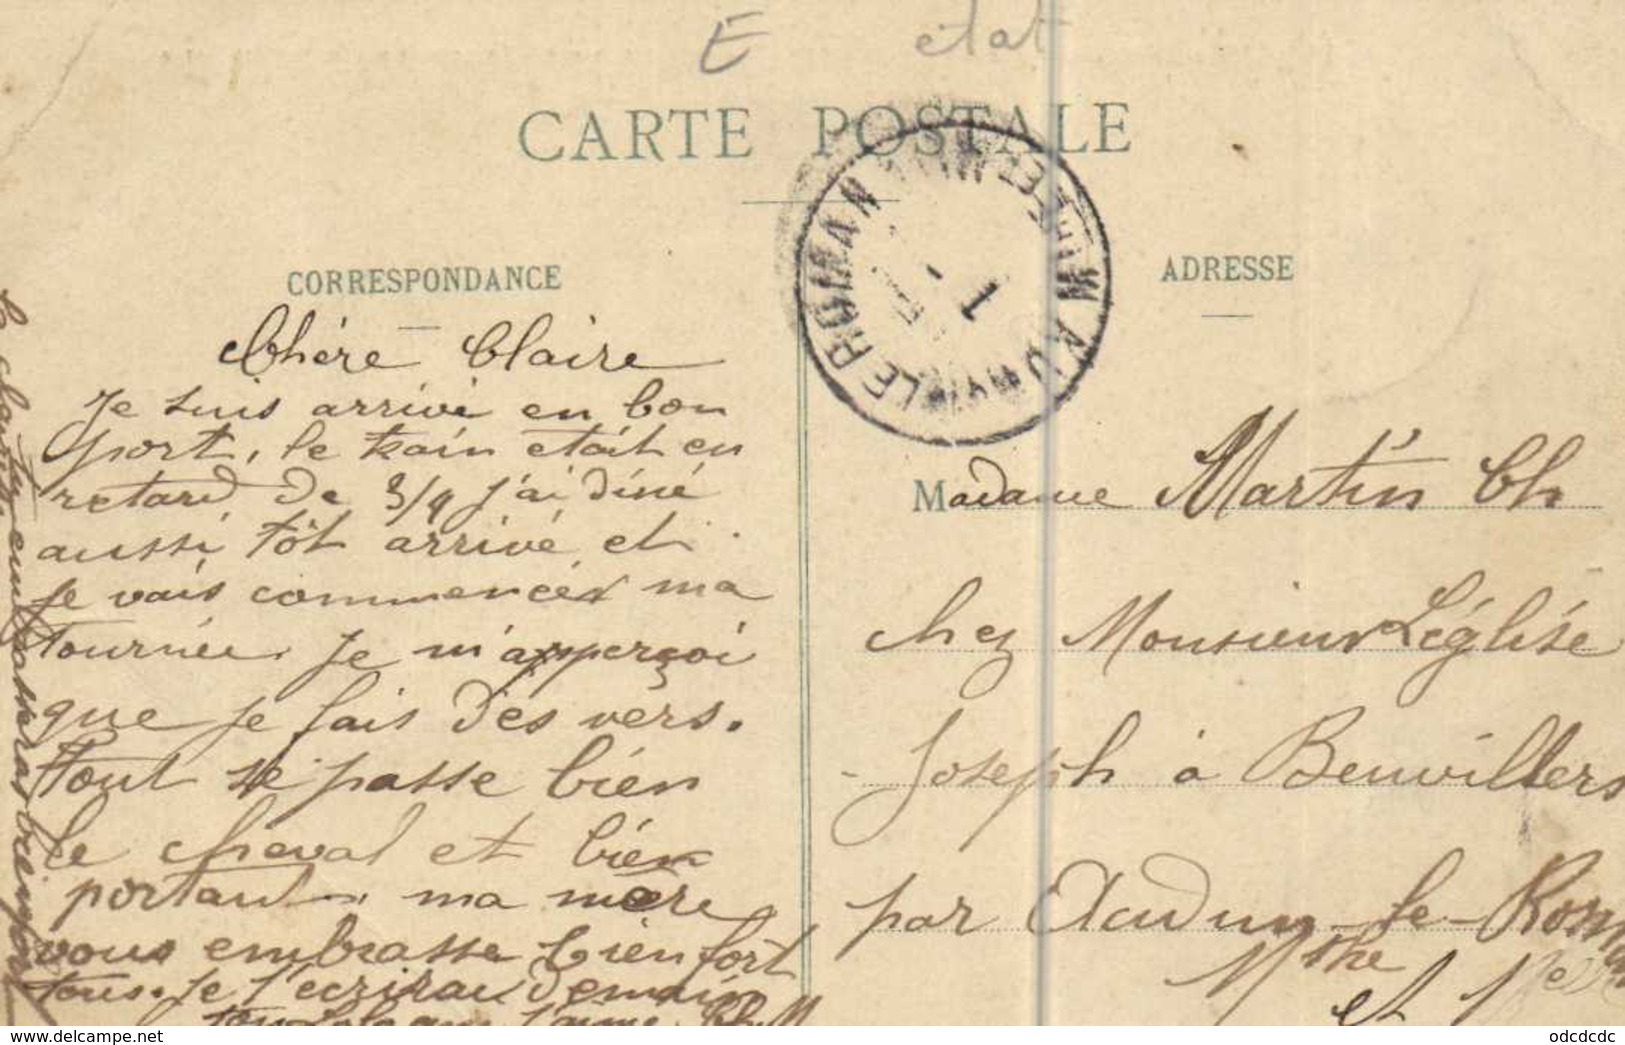 E état
CARTE POSTALE
CORRESPONDANCE
ADRESSE
LE ROMAN
Chère Claire
Je suis arrivé en bon
port, le train était en
retard de 3/4 j'ai diné
aussi tôt arrivé et
je vais commencer ma
tournée. Je m'apperçoi
que je fais des vers.
Tout se passe bien
le cheval et bien
portant. ma mère
vous embrasse bien fort
tous. Je t'écrirai demain
ton qui t'aime
Madame Martin Ch
chez Monsieur Léglise
Joseph à Beuvillers
par Audun-le-Roman
Mthe et
tu embrasseras bien
delcampe.net
odcdcdc